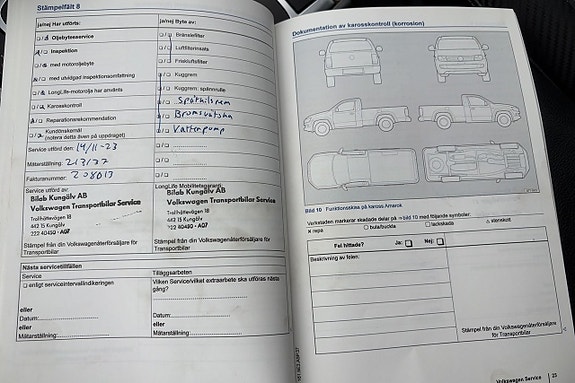 Stämpelfält 8
ja/nej Har utförts:
ja/nej Byte av:
Oljebyteservice
Bränslefilter
Inspektion
Luftfilterinsats
med motoroljebyte
Friskluftsfilter
med utvidgad inspektionsomfattning
LongLife-motorolja har använts
Kuggrem
Karosskontroll
Kuggrem, spännrulle
Reparationsrekommendation
Kundönskemål
(notera detta även på uppdraget)
Bromsvätska
Vattenpump
Service utförd den: 14/11-23
Mätarställning: 213177
Fakturanummer:
Service utförd av:
LongLife Mobilitetsgaranti:
Bilab Kungälv AB
Volkswagen Transportbilar Service
Trollhättevägen 18
442 15 Kungälv
222 80480 - AQ7
Bilab Kungälv AB
Volkswagen Transportbilar Service
Trollhättevägen 18
442 15 Kungälv
222 80480 - AQ7
Stämpel från din Volkswagenåterförsäljare för
Transportbilar
Stämpel från din Volkswagenåterförsäljare för
Transportbilar
Nästa servicetillfällen
Service
Tilläggsarbeten
enligt serviceintervallindikeringen
Vilken Service/vilket extraarbete ska utföras nästa
gång?
eller
Datum:
eller
Mätarställning:
eller
Datum:
eller
Mätarställning:
Dokumentation av karosskontroll (korrosion)
Bild 10 Funktionsskiss på kaross Amarok
Verkstaden markerar skadade delar på bild 10 med följande symboler:
× repa
□ bula/buckla
○ lackskada
△ stenskott
Fel hittade? Ja: Nej:
Beskrivning av felen:
Stämpel från din Volkswagenåterförsäljare för
Transportbilar
Volkswagen Service 23